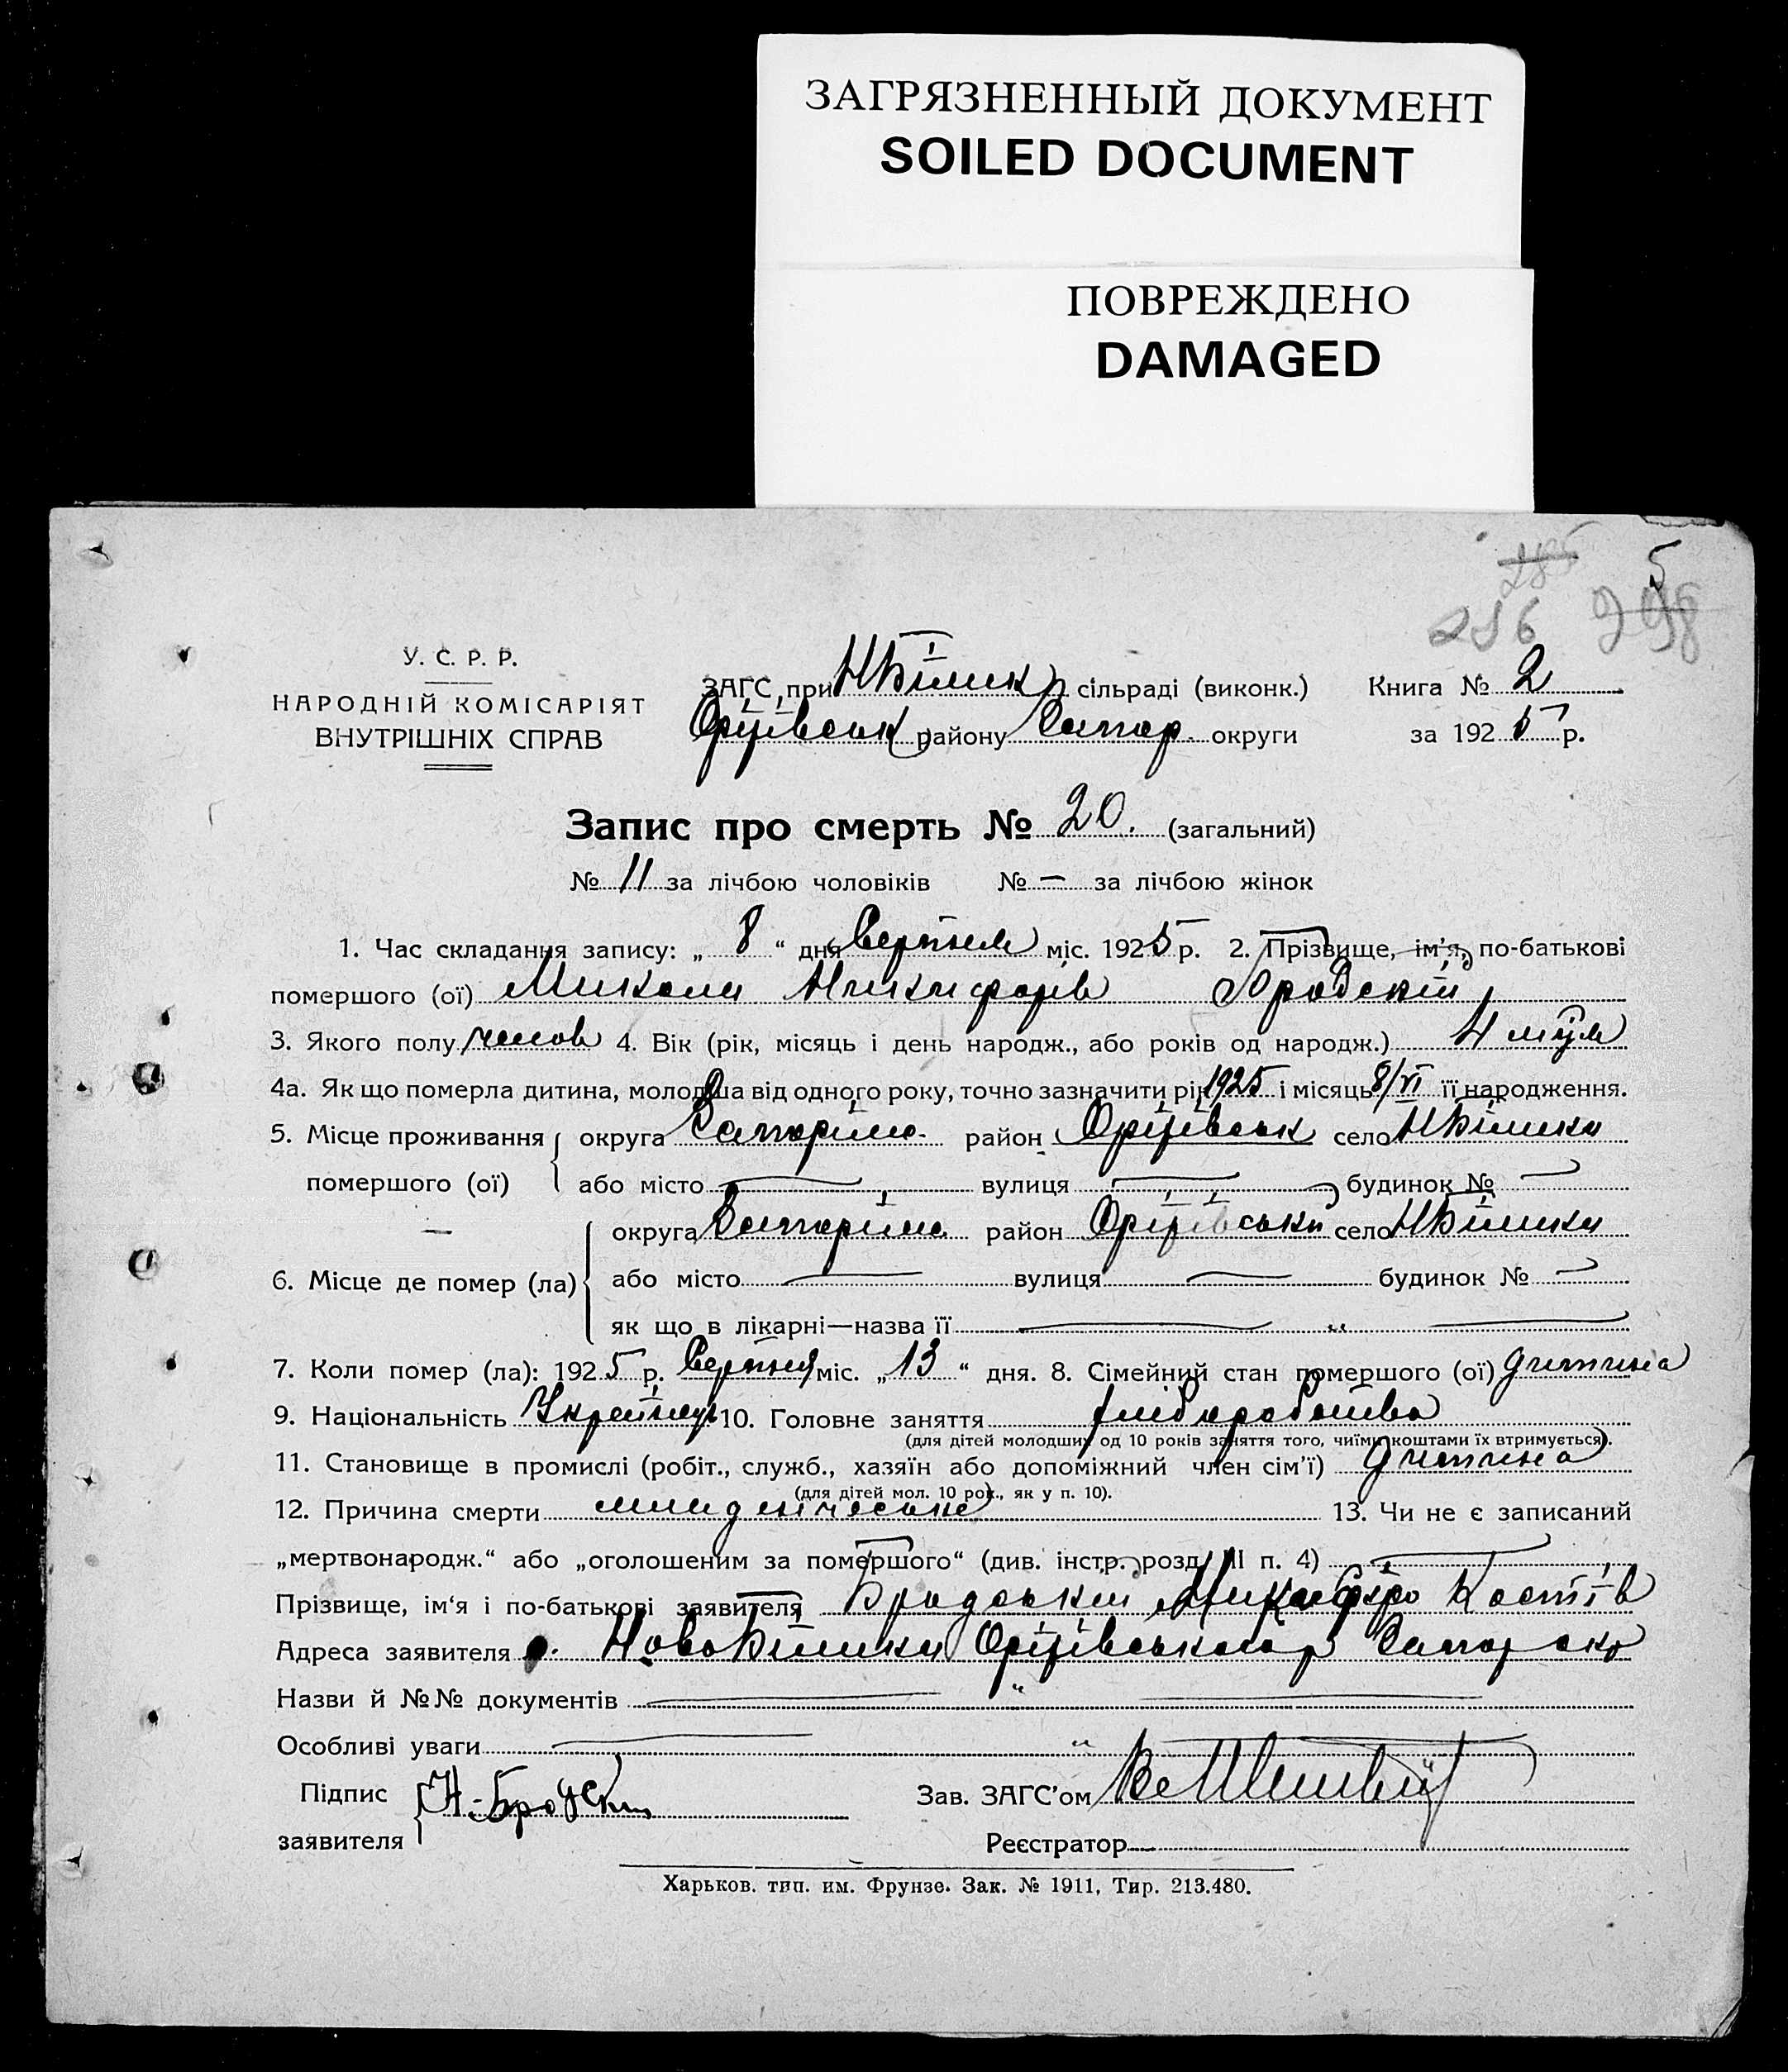 ЗАГРЯЗНЕННЫЙ ДОКУМЕНТ
SOILED DOCUMENT
ПОВРЕЖДЕНО
DAMAGED
285 5
286 298
У. С. Р. Р.
НАРОДНІЙ КОМІСАРІЯТ
ВНУТРІШНІХ СПРАВ
ЗАГС при сільраді (виконк.) Книга № 2
району Запор. округи за 1925 р.
Запис про смерть № 20. (загальний)
№ 11 за лічбою чоловіків № — за лічбою жінок
1. Час складання запису: „ 8 “ дня Вересня міс. 1925 р. 2. Прізвище, ім'я, по-батькові
помершого (ої) Микола Никифорів Бродскій
3. Якого полу чолов 4. Вік (рік, місяць і день народж., або років од народж.) 4
4а. Як що померла дитина, молодша від одного року, точно зазначити рік 1925 і місяць 8/VI її народження.
5. Місце проживання округа район Оріхівськ село
помершого (ої) або місто — вулиця — будинок № —
округа район Оріхівськи село
6. Місце де помер (ла) або місто — вулиця — будинок № —
як що в лікарні—назва її — „ —
7. Коли помер (ла): 1925 р. Вересня міс. „ 13 “ дня. 8. Сімейний стан помершого (ої) дитина
9. Національність Українец 10. Головне заняття хліборобство
(для дітей молодших од 10 років заняття того, чиїми коштами їх втримується).
11. Становище в промислі (робіт., служб., хазяїн або допоміжний член сім'ї) дитина
(для дітей мол. 10 рок., як у п. 10).
12. Причина смерти младенческое 13. Чи не є записаний
„мертвонародж.“ або „оголошеним за помершого“ (див. інстр. розд. III п. 4) —
Прізвище, ім'я і по-батькові заявителя Бродський Никифор Костів
Адреса заявителя с. Оріхівського р Запор окр
Назви й №№ документів — „ —
Особливі уваги — „ —
Підпис Н. Бродский Зав. ЗАГС'ом
заявителя Реєстратор
Харьков. тип. им. Фрунзе. Зак. № 1911, Тир. 213.480.